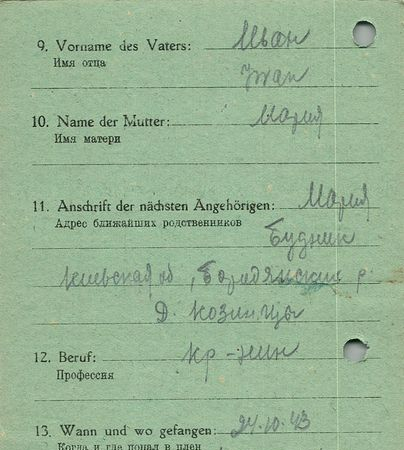 9. Vorname des Vaters: Иван
Имя отца
Iwan
10. Name der Mutter: Мария
Имя матери
11. Anschrift der nächsten Angehörigen: Мария
Адрес ближайших родственников
Будник
киевская об, Бородянский р.
д. Козинцы
12. Beruf: кр-нин
Профессия
13. Wann und wo gefangen: 24.10.43
Когда и где попал в плен